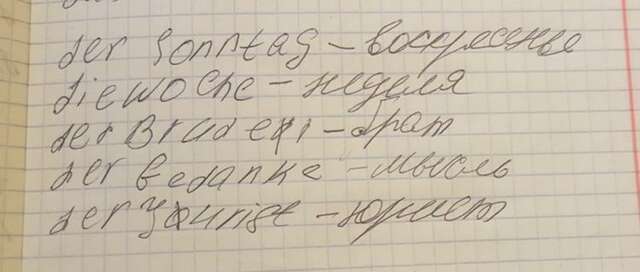 der Sonntag – воскресенье
die woche – неделя
der Bruder – брат
der Gedanke – мысль
der Jurist – юрист